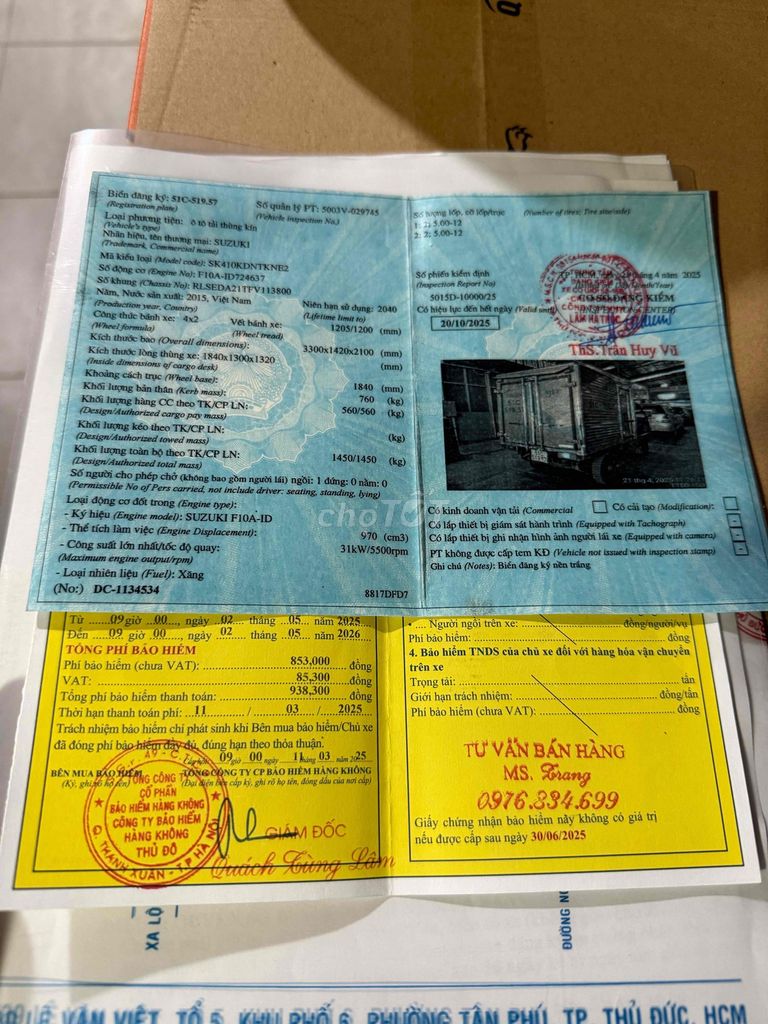 Biển đăng ký: 51C-519.57
(Registration plate)
Số quản lý PT: 5003V-029745
(Vehicle inspection No.)
Loại phương tiện: ô tô tải thùng kín
(Vehicle's type)
Nhãn hiệu, tên thương mại: SUZUKI
(Trademark, Commercial name)
Mã kiểu loại (Model code): SK410KDNTKNE2
Số động cơ (Engine No): F10A-ID724637
Số khung (Chassis No): RLSEDA21TFV113800
Năm, Nước sản xuất: 2015, Việt Nam
(Production year, Country)
Niên hạn sử dụng: 2040
(Lifetime limit to)
Công thức bánh xe: 4x2
(Wheel formula)
Vết bánh xe: 1205/1200 (mm)
(Wheel tread)
Kích thước bao (Overall dimensions): 3300x1420x2100 (mm)
Kích thước lòng thùng xe: 1840x1300x1320
(Inside dimensions of cargo desk) (mm)
Khoảng cách trục (Wheel base): 1840 (mm)
Khối lượng bản thân (Kerb mass): 760 (kg)
Khối lượng hàng CC theo TK/CP LN: 560/560 (kg)
(Design/Authorized cargo pay mass)
Khối lượng kéo theo TK/CP LN: (kg)
(Design/Authorized towed mass)
Khối lượng toàn bộ theo TK/CP LN: 1450/1450 (kg)
(Design/Authorized total mass)
Số người cho phép chở (không bao gồm người lái) ngồi: 1 đứng: 0 nằm: 0
(Permissible No of Pers carried, not include driver: seating, standing, lying)
Loại động cơ đốt trong (Engine type):
- Ký hiệu (Engine model): SUZUKI F10A-ID
- Thể tích làm việc (Engine Displacement): 970 (cm3)
- Công suất lớn nhất/tốc độ quay: 31kW/5500rpm
(Maximum engine output/rpm)
- Loại nhiên liệu (Fuel): Xăng
(No:) DC-1134534
8817DFD7
Số lượng lốp, cỡ lốp/trục (Number of tires; Tire size/axle)
1: 2; 5.00-12
2: 2; 5.00-12
Số phiếu kiểm định
(Inspection Report No)
5015D-10000/25
tháng 4 năm 2025
CƠ SỞ ĐĂNG KIỂM
Có hiệu lực đến hết ngày (Valid until)
20/10/2025
ThS.Trần Huy Vũ
Có kinh doanh vận tải (Commercial
Có cải tạo (Modification):
Có lắp thiết bị giám sát hành trình (Equipped with Tachograph)
Có lắp thiết bị ghi nhận hình ảnh người lái xe (Equipped with camera)
PT không được cấp tem KĐ (Vehicle not issued with inspection stamp)
Ghi chú (Notes): Biển đăng ký nền trắng
choTỐT
Từ 09 giờ 00, ngày 02 tháng 05 năm 2025
Đến 09 giờ 00, ngày 02 tháng 05 năm 2026
TỔNG PHÍ BẢO HIỂM
Phí bảo hiểm (chưa VAT): 853,000 đồng
VAT: 85,300 đồng
Tổng phí bảo hiểm thanh toán: 938,300 đồng
Thời hạn thanh toán phí: 11 / 03 / 2025
Trách nhiệm bảo hiểm chỉ phát sinh khi Bên mua bảo hiểm/Chủ xe
đã đóng phí bảo hiểm đầy đủ, đúng hạn theo thỏa thuận.
09 giờ 00 ngày 11 tháng 03 năm 2025
BÊN MUA BẢO HIỂM
(Ký, ghi rõ họ tên)
TỔNG CÔNG TY CP BẢO HIỂM HÀNG KHÔNG
(Đại diện bên cấp ký, ghi rõ họ tên, đóng dấu của nơi cấp)
TỔNG CÔNG TY
CỔ PHẦN
BẢO HIỂM HÀNG KHÔNG
CÔNG TY BẢO HIỂM
HÀNG KHÔNG
THỦ ĐÔ
Q. THANH XUÂN - T.P HÀ NỘI
GIÁM ĐỐC
Quách Tùng Lâm
Người ngồi trên xe: đồng/người/vụ
Phí bảo hiểm: đồng
4. Bảo hiểm TNDS của chủ xe đối với hàng hóa vận chuyển
trên xe
Trọng tải: tấn
Giới hạn trách nhiệm: đồng/tấn
Phí bảo hiểm (chưa VAT): đồng
TƯ VẤN BÁN HÀNG
MS. Trang
0976.334.699
Giấy chứng nhận bảo hiểm này không có giá trị
nếu được cấp sau ngày 30/06/2025
XA LỘ
LÊ VĂN VIỆT, TỔ 5, KHU PHỐ 6, PHƯỜNG TÂN PHÚ, TP. THỦ ĐỨC, HCM